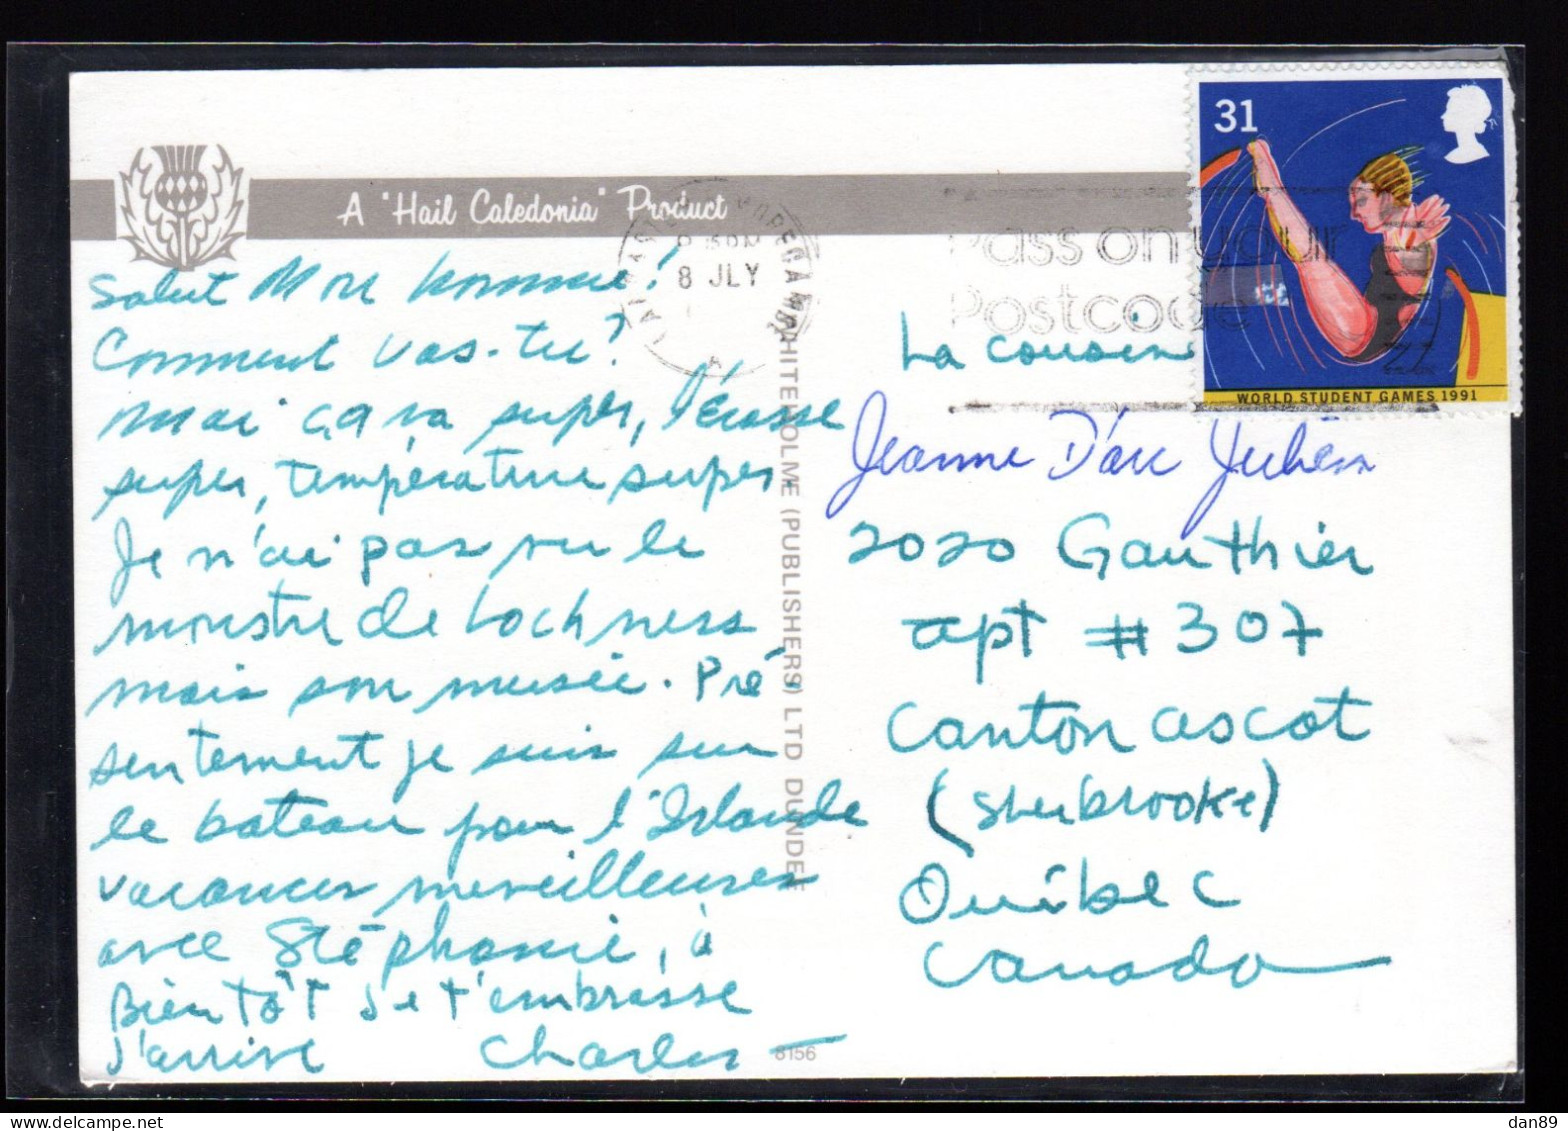 31
A "Hail Caledonia" Product
8 JLY
Pass on your
Postcode
WORLD STUDENT GAMES 1991
Salut Mon homme!
Comment vas-tu?
Moi ça va super, l'écosse
super, température super
Je n'ai pas vu le
monstre de Lochness
mais son musée. Pré-
sentement je suis sur
le bateau pour l'Irlande
vacances merveilleuses
avec Stéphanie, à
Bientôt Je t'embrasse
J'arrive Charles
WHITEHOLME (PUBLISHERS) LTD DUNDEE
6156
La cousin
Jeanne D'arc Julien
2020 Gauthier
apt #307
Canton ascot
(Sherbrooke)
Québec
Canada
dan89